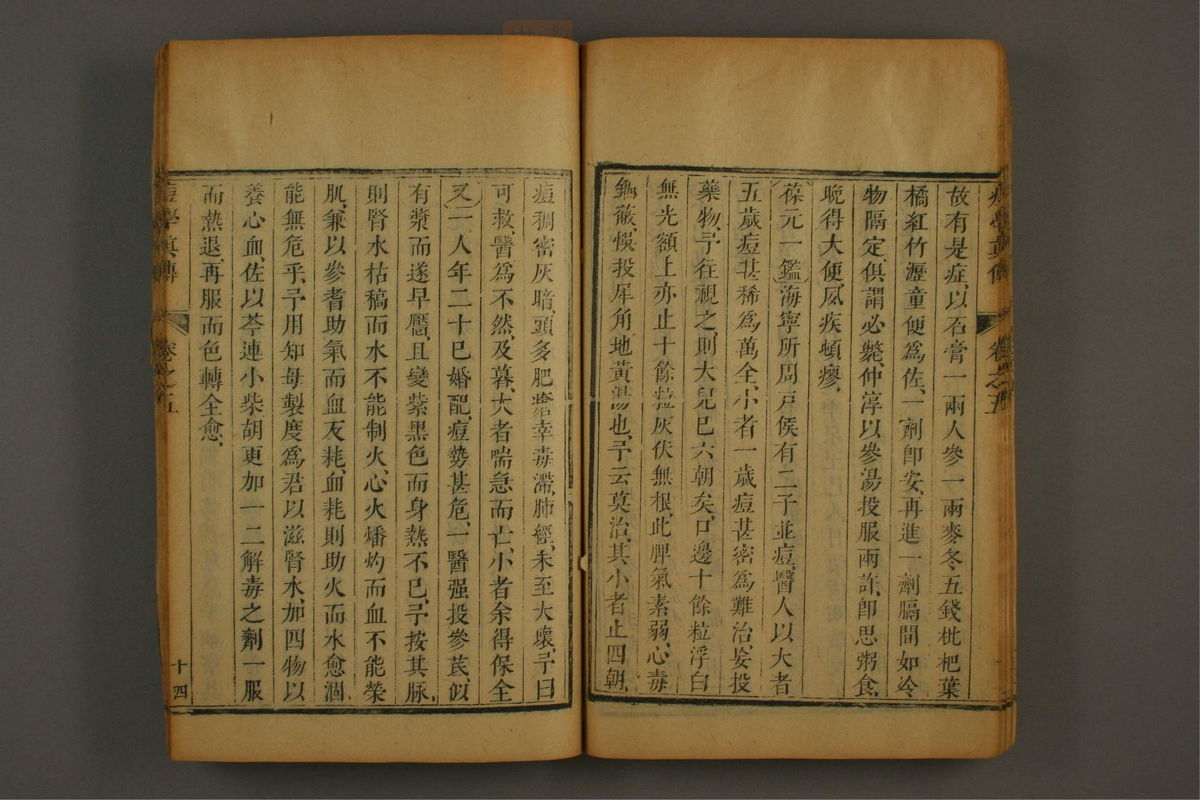 故有是症以石膏一兩人參一兩麥冬五錢枇杷葉
橘紅竹瀝童便爲佐一劑卽安再進一劑膈間如冷
物隔定俱謂必斃仲淳以參湯投服兩許卽思粥食
晚得大便夙疾頓瘳
葆元一鑑海寧所周戸侯有二子並痘醫人以大者
五歲痘甚稀爲萬全小者一歲痘甚密爲難治妄投
藥物予往視之則大兒已六朝矣口邊十餘粒浮白
無光額上亦止十餘粒灰伏無根此脾氣素弱心毒
熾蔽悞投犀角地黃湯也予云莫治其小者止四朝
痘稠密灰暗頭多肥瘡幸毒滯肺經未至大壞予曰
可救醫爲不然及暮大者喘急而亡小者余得保全
又一人年二十巳婚配痘勢甚危一醫强投參芪似
有漿而遂早靨且變紫黑色而身熱不巳予按其脉
則腎水枯稿而水不能制火心火燔灼而血不能榮
肌兼以參耆助氣而血反耗血耗則助火而水愈涸
能無危乎予用知母製度爲君以滋腎水加四物以
養心血佐以芩連小柴胡更加一二解毒之劑一服
而熱退再服而色轉全愈
痘學真傳
卷之五
十四